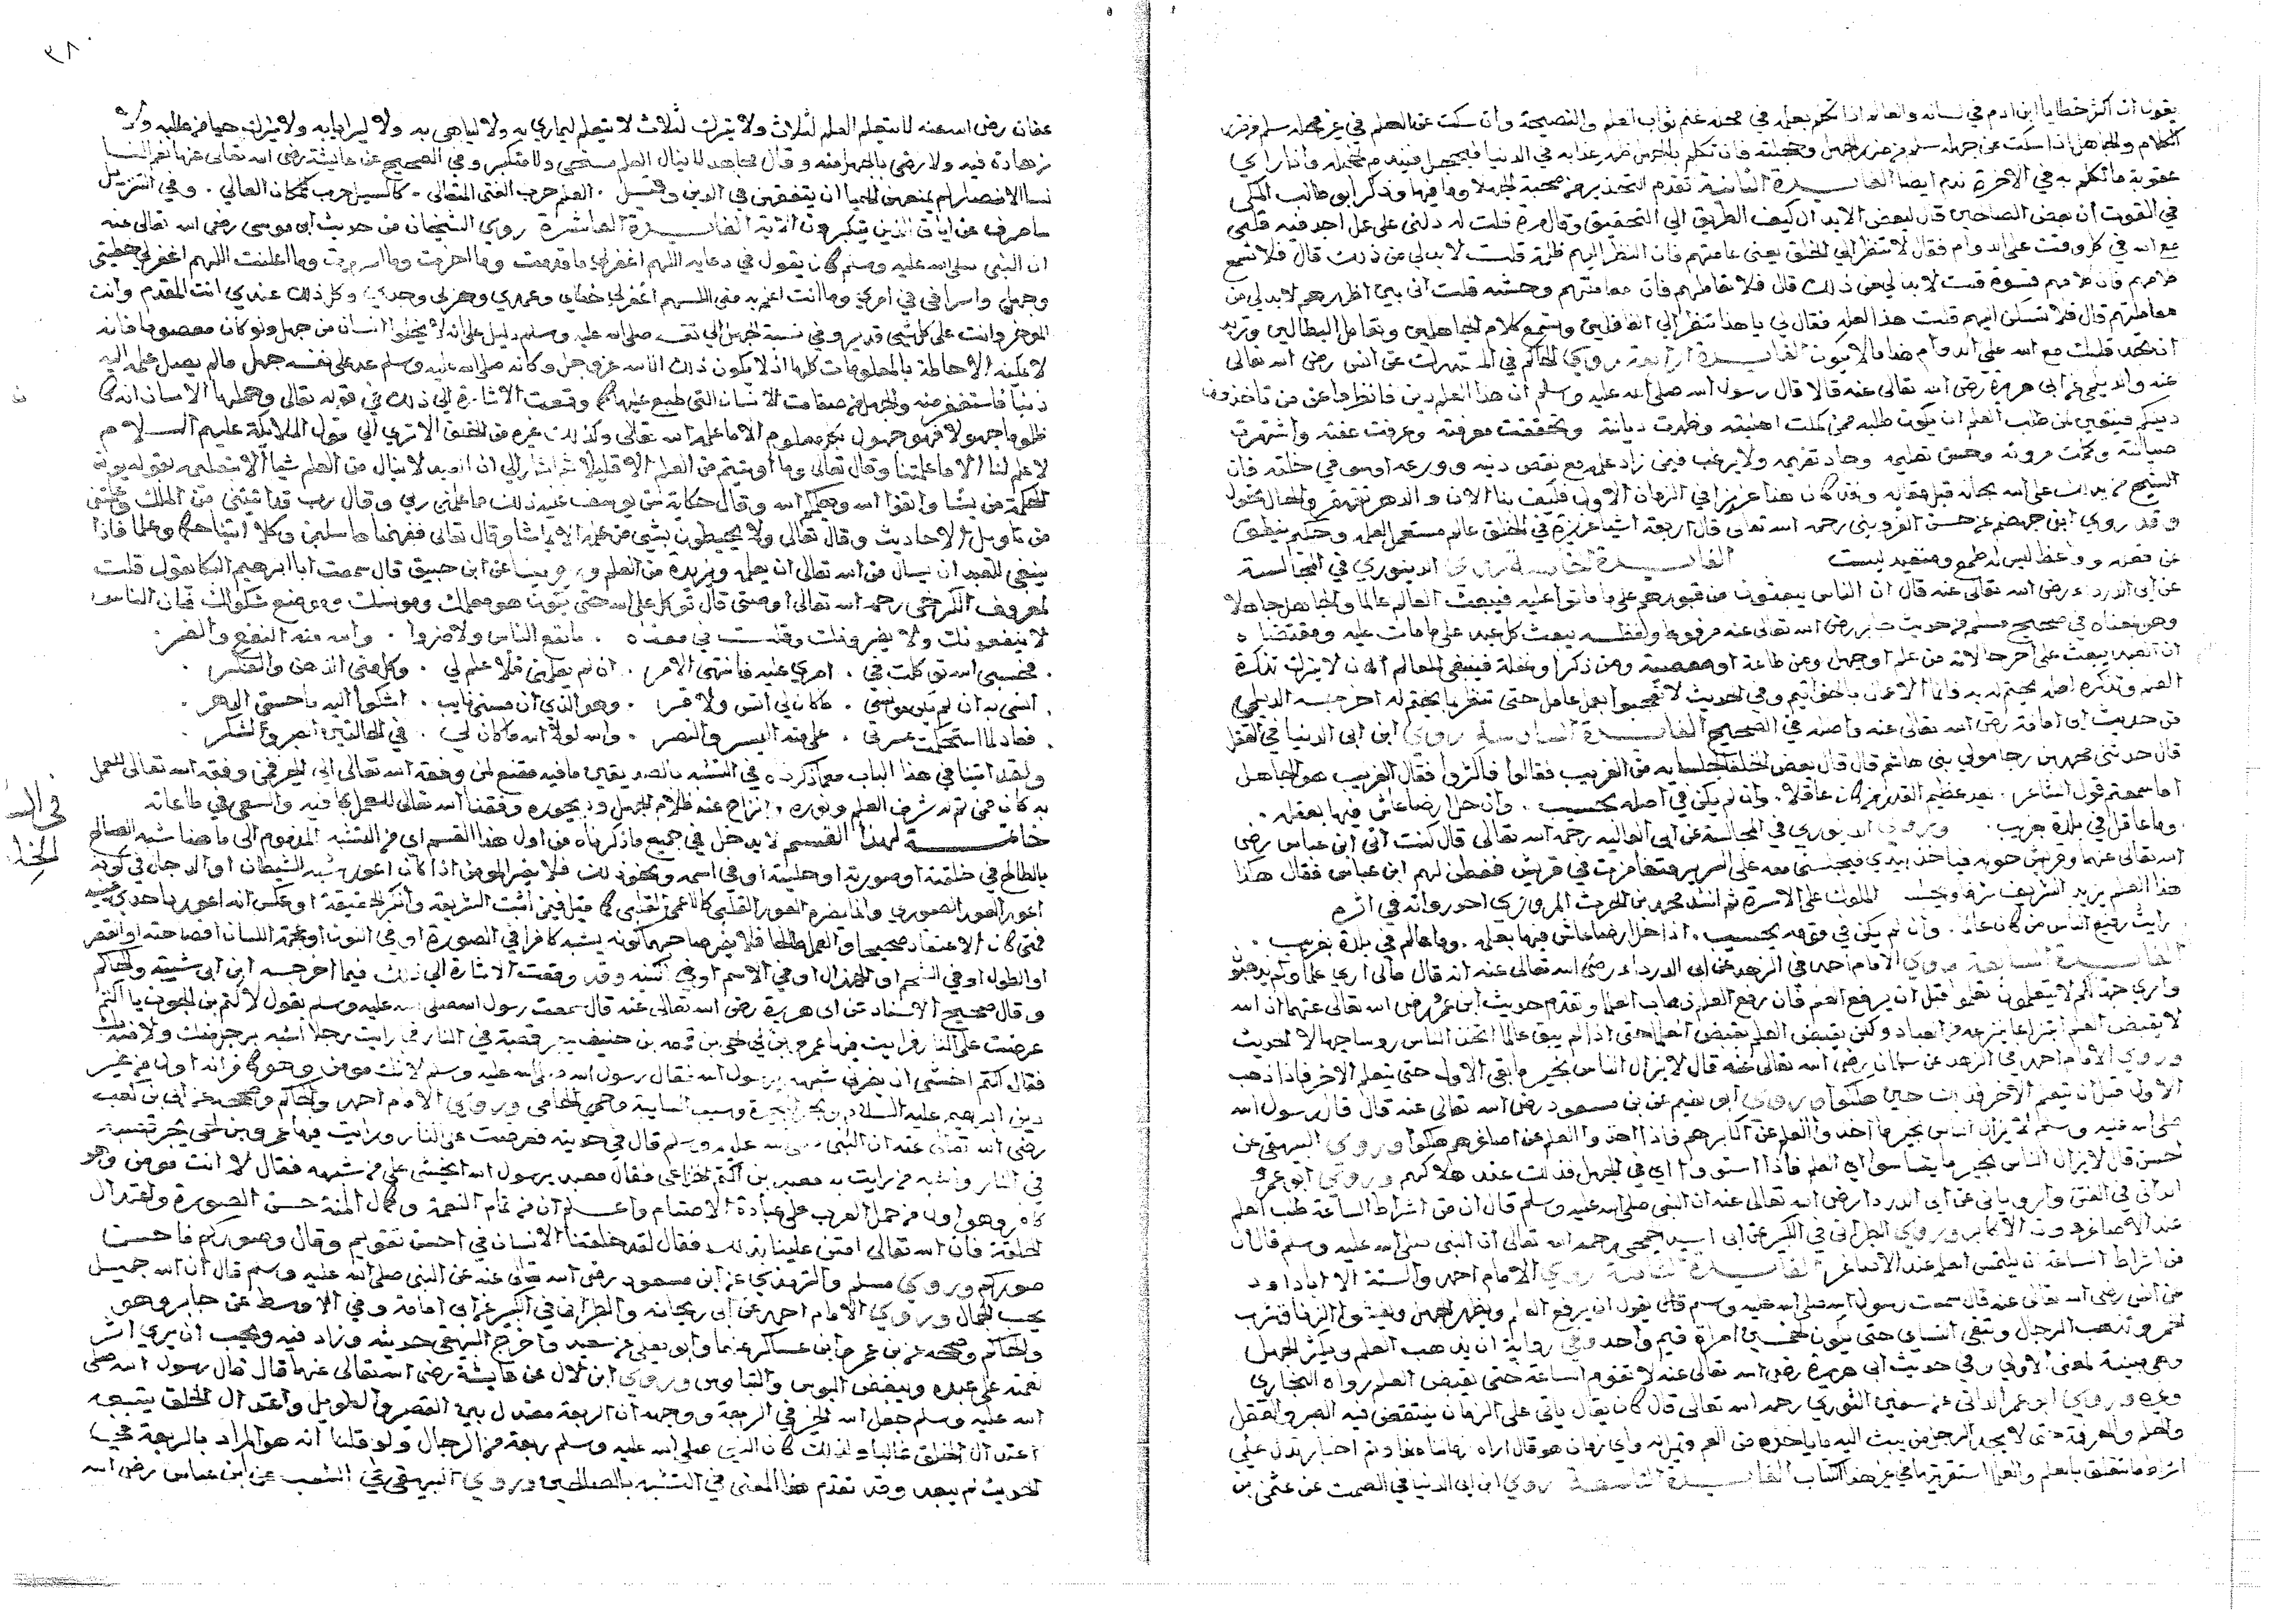 يقول ان اكثر خطايا ابن ادم في لسانه والعالم اذا تكلم بعلمه في محله غنم ثواب العلم والنصيحة وان سكت عن العلم في غير محله سلم
الكلام والجاهل اذا سكت عن جهله سلم وان تكلم بالجهل في الدنيا
عقوبة ما تكلم به في الاخرة ندم ايضا الفائدة الثالثة تقدم التحذير من صحبة الجهلا وما فيها وذكر ابو طالب المكي
في القوت ان بعض الصالحين قال لبعض الابدال كيف الطريق الي التحقيق وقال مرة قلت له دلني على عمل اجد فيه قلبي
مع الله في كل وقت على الدوام فقال لا تنظر الي الخلق يعني عامتهم فان النظر اليهم ظلمة قلت لا بد لي من ذلك قال فلا تسمع
كلامهم فان كلامهم قسوة قلت لا بد لي من ذلك قال فلا تعاملهم فان معاملتهم وحشة قلت اني بين اظهرهم لا بد لي من
معاملتهم قال فلا تسكن اليهم قلت هذا العله فقال لي يا هذا تنظر الي الغافلين وتسمع كلام الجاهلين وتعامل البطالين وتريد
ان تجد قلبك مع الله على الدوام هذا ما لا يكون الفائدة الرابعة روي الحاكم في المستدرك عن انس رضي الله تعالى
عنه والديلمي عن ابى هريرة رضي الله تعالى عنه قالا قال رسول الله صلى الله عليه وسلم ان هذا العلم دين فانظروا عن من تاخذون
دينكم فيتعين لمن طلب العلم ان يكون طلبه ممن كملت اهليته وظهرت ديانته وتحققت معرفته وعرفت عفته واشتهرت
صيانته وحسن تعليمه وجاد تفهيمه ولا يرغب فيمن زاد علمه مع نقص دينه وورعه او سوء في خلقه فان
وقد روي ابن جهضم عن حسن القزويني رحمه الله تعالى قال اربعة اشيا عزيزة في الخلق عالم مستعمل لعلمه وحكيم ينطق
عن فعله وواعظ ليس له طمع ومتعبد الفائدة الخامسة روي الدينوري في المجالسة
عن ابى الدرداء رضي الله تعالى عنه قال ان الناس يبعثون من قبورهم على ما ماتوا عليه فيبعث العالم عالما والجاهل جاهلا
وهو بمعناه في صحيح مسلم من حديث جابر رضي الله تعالى عنه مرفوعا ولفظه يبعث كل عبد على ما مات عليه ومقتضاه
ان العبد يبعث على اخر حالاته من علم او جهل ومن طاعة او معصية ومن ذكر او غفلة فينبغي للعالم ان لا يترك تذكرة
العلم وتذكره لعله يختم له به فانما الاعمال بالخواتيم وفي الحديث لا تعجبوا بعمل عامل حتى تنظروا بما يختم له اخرجه الديلمي
من حديث ابى امامة رضي الله تعالى عنه واصله في الصحيح الفائدة السادسة روي ابن ابى الدنيا في العقل
قال حدثني محمد بن رجا مولي بني هاشم قال قال بعض الخلفا لجلسايه من الغريب فقالوا فاكثروا فقال الغريب هو الجاهل
اما سمعتم قول الشاعر . يعد عظيم القدر من كان عاقلا . وان لم يكن في اصله بحسيب . وان حل ارضا عاش فيها بعقله .
. وما عاقل في بلدة بغريب . وروي الدينوري في المجالسة عن ابى العالية رحمه الله تعالى قال كنت اتي ابن عباس رضي
الله تعالى عنهما وقريش حوله فياخذ بيدي فيجلسني معه على السرير فتغامزت في قريش ففطن لهم ابن عباس فقال هكذا
هذا العلم يزيد الشريف شرفا ويجلس المملوك على الاسرة ثم انشد محمد بن الحرث المروزي في اثره
رايت رفيع الناس من كان عالما . وان لم يكن في قومه بحسيب . اذا حل ارضا عاش فيها بعلمه . وما عالم في بلدة بغريب .
الفائدة السابعة روي الامام احمد في الزهد عن ابى الدرداء رضي الله تعالى عنه انه قال مالى اري علماؤكم يذهبون
واري جهالكم لا يتعلمون تعلموا قبل ان يرفع العلم فان رفع العلم ذهاب العلما وتقدم حديث ابن عمر رضي الله تعالى عنهما ان الله
لا يقبض العلم انتزاعا ينتزعه من العباد ولكن يقبض العلم بقبض العلما حتى اذا لم يبق عالما اتخذ الناس روسا جهالا الحديث
وروي الامام احمد في الزهد عن سلمان رضي الله تعالى عنه قال لا يزال الناس بخير ما بقي الاول حتى يتعلم الاخر فاذا ذهب
الاول قبل ان يتعلم الاخر فذلك حين هلكوا وروي ابو نعيم عن بن مسعود رضي الله تعالى عنه قال قال رسول الله
صلى الله عليه وسلم لا يزال الناس بخير ما اخذوا العلم عن اكابرهم فاذا اخذوا العلم عن اصاغرهم هلكوا وروي البيهقي عن
الحسن قال لا يزال الناس بخير ما تفاضلوا اي في العلم فاذا استووا اي في الجهل فذلك عند هلاكهم وروي ابو عمرو
الداني في الفتن والروياني عن ابى الدرداء رضي الله تعالى عنه ان النبي صلى الله عليه وسلم قال ان من اشراط الساعة طلب العلم
عند الاصاغر دون الاكابر وروي الطبراني في الكبير عن ابى امية الجمحي رحمه الله تعالى ان النبي صلى الله عليه وسلم قال ان
من اشراط الساعة ان يلتمس العلم عند الاصاغر الفائدة الثامنة روي الامام احمد والستة الا ابا داود
عن انس رضي الله تعالى عنه قال سمعت رسول الله صلى الله عليه وسلم يقول ان يرفع العلم ويظهر الجهل ويفشوا الزنا وتشرب
الخمر وتذهب الرجال وتبقى النسا حتى يكون لخمسين امراة قيم واحد وفي رواية ان يذهب العلم ويكثر الجهل
وهي مبينة لمعنى الاولي وفي حديث ابى هريرة رضي الله تعالى عنه لا تقوم الساعة حتى يقبض العلم رواه البخاري
وغيره وروي ابو عمرو الداني عن سفين الثوري رحمه الله تعالى قال كان يقال ياتي على الزمان ينتقص فيه الصبر والعقل
والحلم والمعرفة حتى لا يجد الرجل من يبث اليه ما يجده من الغم
اشراط ما تتعلق بالعلم والعلما في غير هذا الكتاب الفائدة التاسعة روي ابن ابى الدنيا في الصمت عن عثمن بن
٣٨٠
عفان رضي الله عنه لا تتعلم العلم لثلاث ولا تترك لثلاث لا يتعلم ليماري به ولا ليباهي به ولا ليرايا به ولا يترك حيا من طلبه ولا
زهادة فيه ولا رضي بالجهل منه وقال مجاهد لا ينال العلم مستحي ولا متكبر وفي الصحيح عن عايشة رضي الله تعالى عنها نعم النسا
نسا الانصار لم يمنعهن الحيا ان يتفقهن في الدين وقيل . العلم حرب الفتي المتعالى . كالسيل حرب للمكان العالي . وفي التنزيل
ساصرف عن اياتي الذين يتكبرون الاية الفائدة العاشرة روي الشيخان من حديث ابى موسى رضي الله تعالى عنه
ان النبي صلى الله عليه وسلم كان يقول في دعايه اللهم اغفر لي ما قدمت وما اخرت وما اسررت وما اعلنت اللهم اغفر لي خطيئتي
وجهلي واسرافي في امري وما انت اعلم به مني اللهم اغفر لي خطاي وعمدي وهزلي وجدي وكل ذلك عندي انت المقدم وانت
الموخر وانت على كل شيئ قدير وفي نسبة الجهل الى نفسه صلى الله عليه وسلم دليل على انه لا يخلوا انسان من جهل ولو كان معصوما فانه
لا يمكنه الاحاطة بالمعلومات كلها اذ لا يكون ذلك الا لله عز وجل وكانه صلى الله عليه وسلم عد على نفسه جهل مالم يصل علمه اليه
ذنبا فاستغفر منه والجهل من صفات الانسان التي طبع عليها كما وقعت الاشارة الي ذلك في قوله تعالى وحملها الانسان انه كان
ظلوما جهولا فهو جهول بكل معلوم الا ما علمه الله تعالى وكذلك غيره من الخلق الا تري الي قول الملايكة عليهم السلام
لا علم لنا الا ما علمتنا وقال تعالى وما اوتيتم من العلم الا قليلا ثم اشار الي ان العبد لا ينال من العلم شيا الا بتعليمه بقوله يوتي
الحكمة من يشا واتقوا الله ويعلمكم الله وقال حكاية عن يوسف عليه ذلك مما علمني ربي وقال رب قد اتيتني من الملك وعلمتني
من تاويل الاحاديث وقال تعالى ولا يحيطون بشيئ من علمه الا بما شا وقال تعالى ففهمناها سليمن وكلا اتينا حكما وعلما فاذا
ينبغي للعبد ان يسال من الله تعالى ان يعلمه ويزيده من العلم وروينا عن ابن خبيق قال سمعت ابا ابرهيم البكا يقول قلت
لمعروف الكرخي رحمه الله تعالى اوصني قال توكل على الله حتى يكون هو معلمك ومونسك وموضع شكواك فان الناس
لا ينفعونك ولا يضرونك وقلت في معناه . ما نفع الناس ولا ضروا . والله منه النفع والضر .
. فحسبي الله توكلت في . امري عليه فانتهى الامر . ان لم يعلمني فلا علم لي . وكل مني الذهن والفكر .
. انسى به ان لم يكن مونسي . ما كان لي انس ولا قر . وهو الذي ان مسني نايب . اشكوا اليه ما جنى الدهر .
. فعاد لما استحكمت عسرتي . على منه اليسر والنصر . والله لولا الله ما كان لي . في الحالتين الصبر والشكر .
ولقد اتينا في هذا الباب مما ذكرناه في التشبه بالصديقين ما فيه مقنع لمن وفقه الله تعالى الي الخير فمن وفقه الله تعالى للعمل
به كان ممن تم له شرف العلم ونوره وانزاح عنه ظلام الجهل وديجوره وفقنا الله تعالى للعمل بما فيه والسعي في طاعاته
خاتمة لهذا القسم لا يدخل في جميع ما ذكرناه من اول هذا القسم اي من التشبه المذموم الى ما هنا شبه الصالح
بالطالح في خلقته او صورته او حليته او في اسمه ونحو ذلك فلا يضر المومن اذا كان اعور شبه الشيطان او الدجال في كونه
اعور العور الصوري وانما يضره العور القلبي كالاعمى القلبي كما قيل فيمن اثبت الشريعة وانكر الحقيقة او عكس انه اعور باحدي عينيه
فمتى كان الاعتقاد صحيحا والعمل صالحا فلا يضر صاحبهما كونه يشبه كافرا في الصورة او في اللون او عجمة اللسان او فصاحته او القصر
او الطول او في السمن او الهزال او في الاسم او في الكنية وقد وقعت الاشارة الي ذلك فيما اخرجه ابن ابى شيبة والحاكم
وقال صحيح الاسناد عن ابى هريرة رضي الله تعالى عنه قال سمعت رسول الله صلى الله عليه وسلم يقول لاكثم بن الجون يا اكثم
عرضت علي النار فرايت فيها عمرو بن لحي بن قمعة بن خندف يجر قصبة في النار فما رايت رجلا اشبه برجل منك به ولا به منك
فقال اكثم اخشى ان يضرني شبهه يرسول الله فقال رسول الله صلى الله عليه وسلم لا انك مومن وهو كافر انه اول من غير
دين ابرهيم عليه السلام وبحر البحيرة وسيب السايبة وحمي الحامي وروي الامام احمد والحاكم وصححه عن ابى بن كعب
رضي الله تعالى عنه ان النبي صلى الله عليه وسلم قال في حديثه فعرضت على النار ورايت فيها عمرو بن لحي يجر قصبه
في النار واشبه من رايت به معبد بن اكثم الخزاعى فقال معبد يرسول الله ايخشى علي من شبهه فقال لا انت مومن وهو
كافر وهو اول من حمل العرب على عبادة الاصنام واعلم ان من تمام النعمة وكمال المنة حسن الصورة واعتدال
الخلقة فان الله تعالى امتن علينا بذلك فقال لقد خلقنا الانسان في احسن تقويم وقال وصوركم فاحسن
صوركم وروي مسلم والترمذي عن ابن مسعود رضي الله تعالى عنه عن النبي صلى الله عليه وسلم قال ان الله جميل
يحب الجمال وروي الامام احمد عن ابى ريحانة والطبراني في الكبير عن ابى امامة وفي الاوسط عن جابر وهو
والحاكم وصححه عن بن عمر وابن عساكر عنهما وابو يعلى عن ابى سعيد واخرج البيهقي حديثه وزاد فيه ويحب ان يري اثر
نعمته على عبده ويبغض البوس والتباوس وروي ابن لال عن عايشة رضي الله تعالى عنها قال قال رسول الله صلى
الله عليه وسلم جعل الله الخير في الربعة ووجهه ان الربعة معتدل بين القصير والطويل واعتدال الخلق يتبعه
اعتدال الخلق غالبا ولذلك كان النبي صلى الله عليه وسلم ربعة من الرجال ولو قلنا انه هو المراد بالربعة في
الحديث لم يبعد وقد تقدم هذا المعنى في التشبه بالصالحين وروي البيهقي في الشعب عن ابن عباس رضي الله